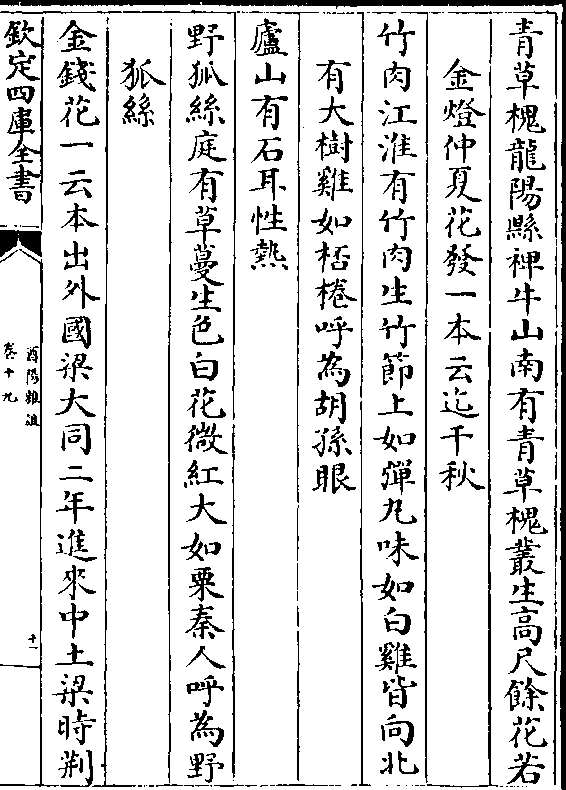 青草槐龍陽縣裨牛山南有青草槐叢生高尺餘花若
金燈仲夏花發一本云迄千秋
竹肉江淮有竹肉生竹節上如彈丸味如白雞皆向北
有大樹雞如桮棬呼為胡孫眼
廬山有石耳性熱
野狐絲庭有草蔓生色白花微紅大如粟秦人呼為野
狐絲
金錢花一云本出外國梁大同二年進來中土梁時荆
欽定四庫全書
酉陽雜俎
卷十九
十一